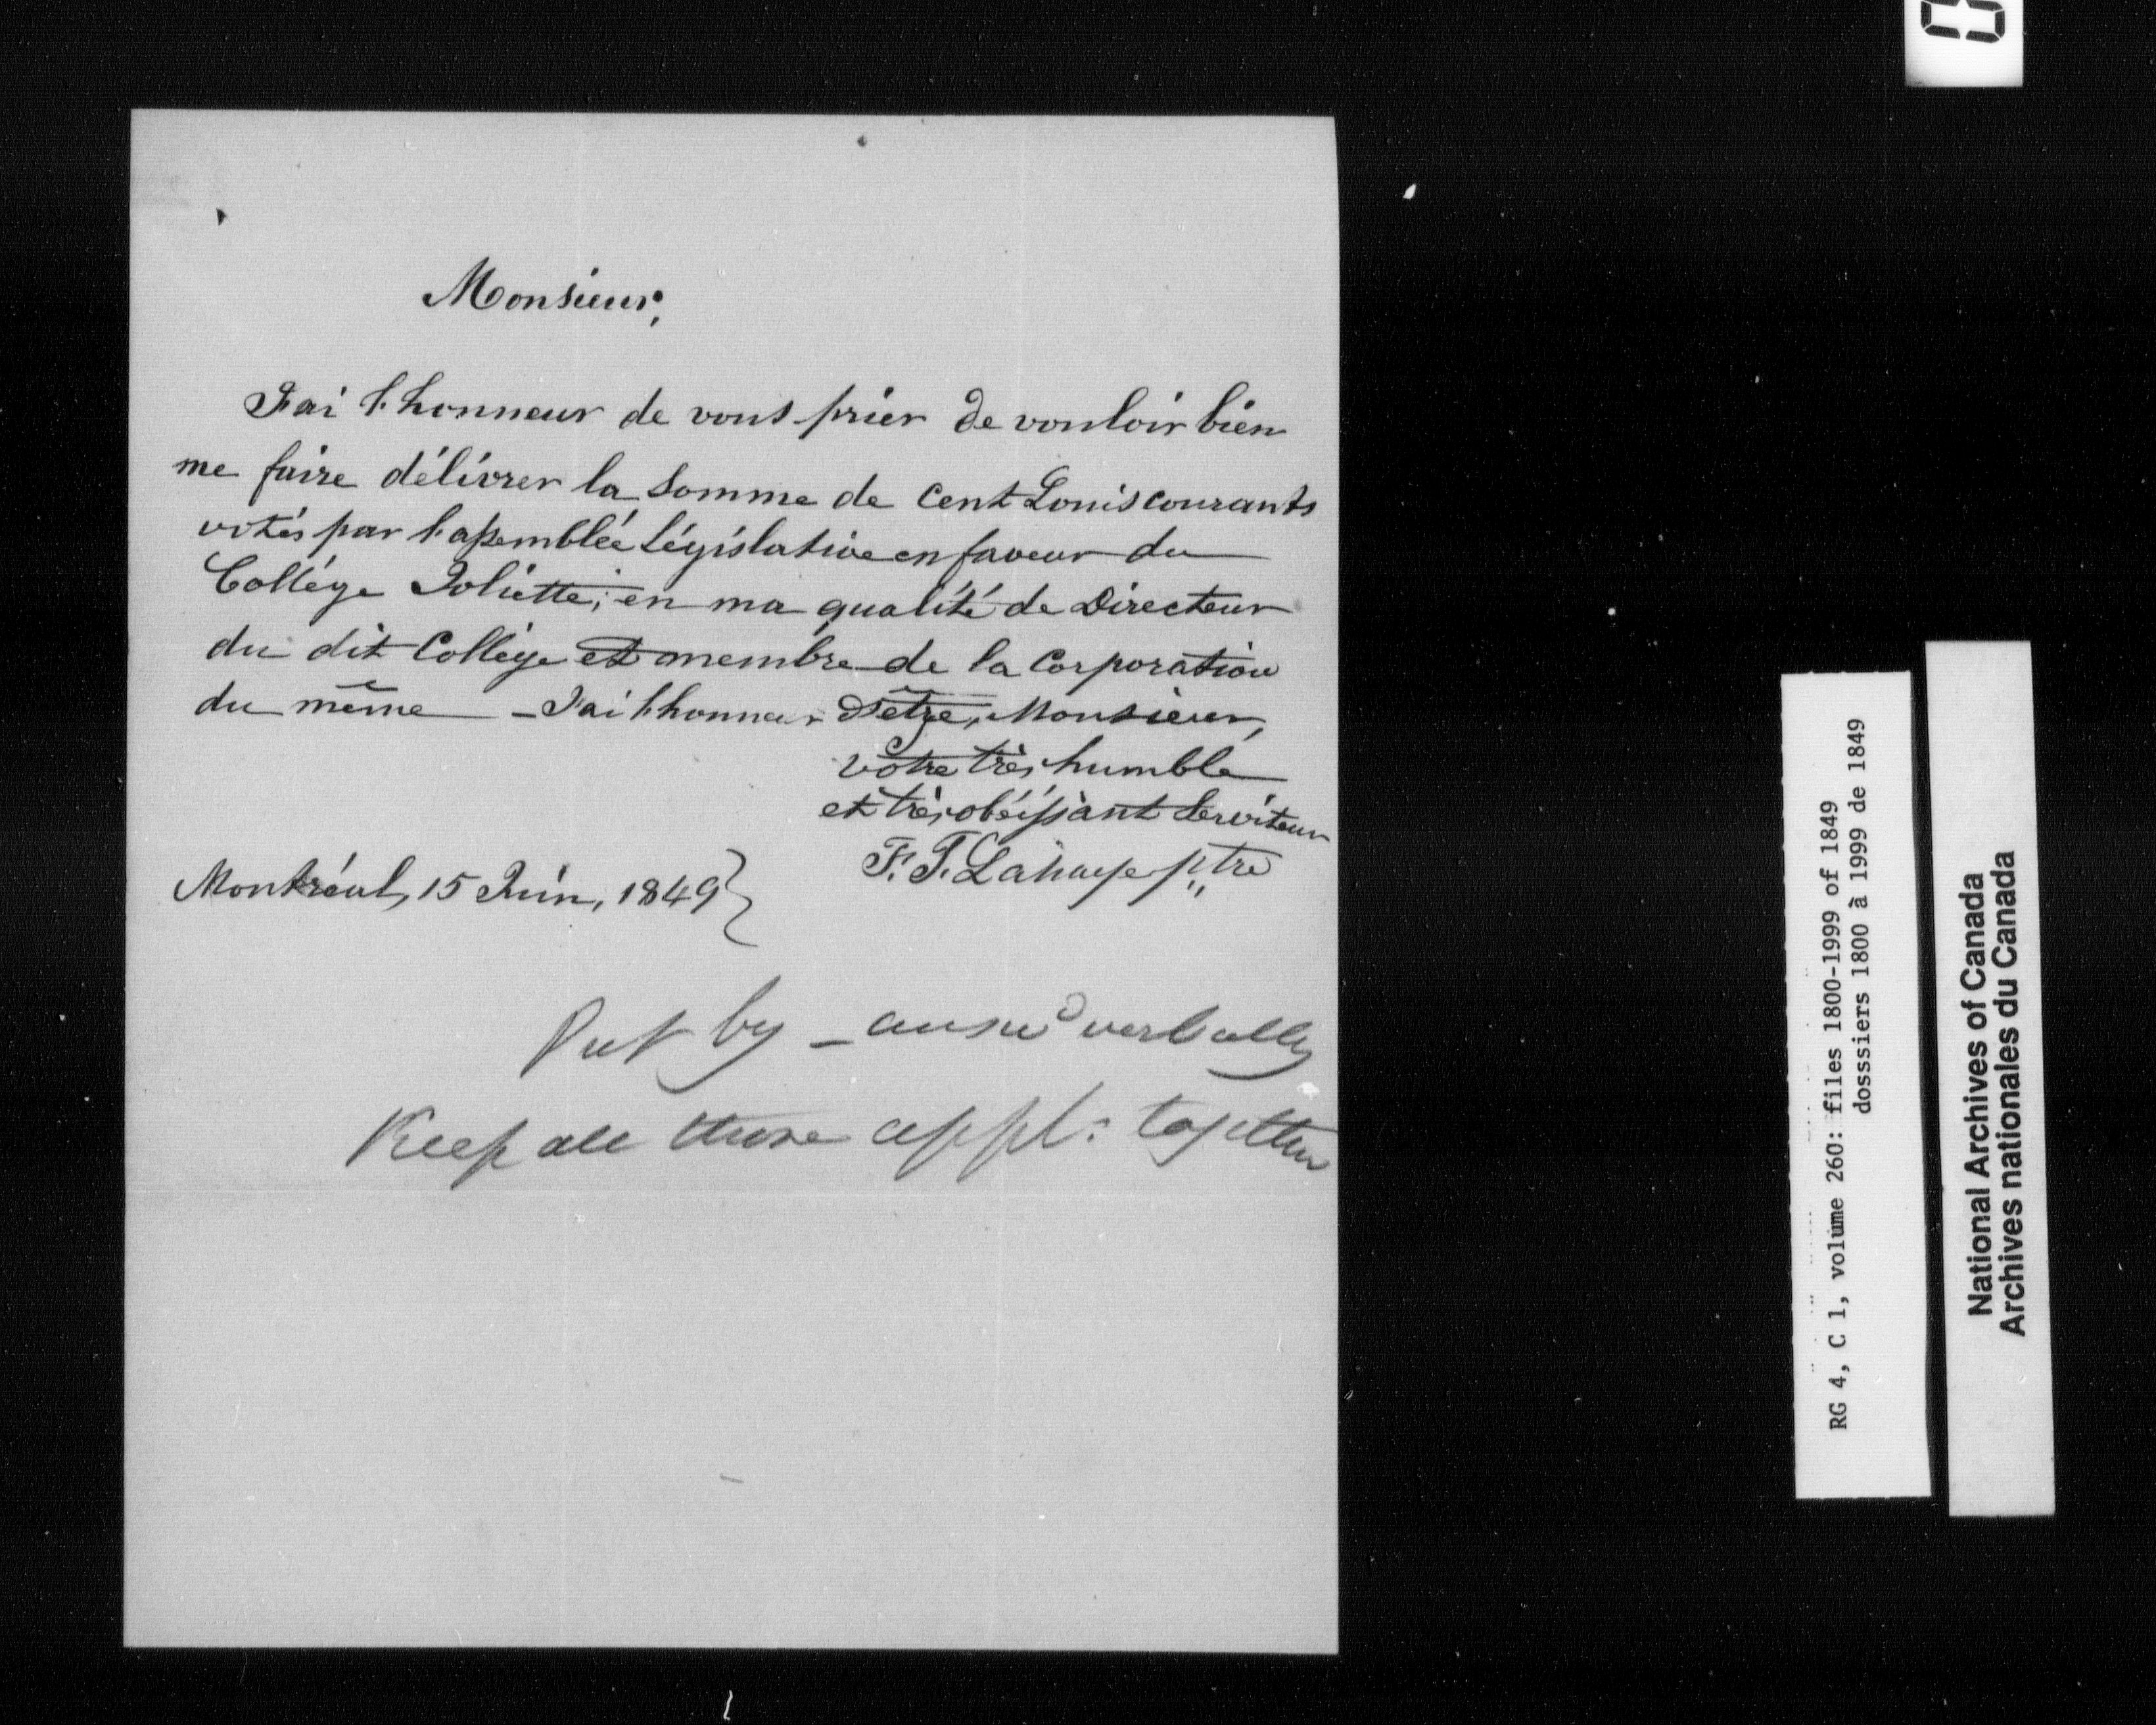 Monsieur,
J'ai l'honneur de vous prier de vouloir bien
me faire délivrer la somme de cent Louis courants
votés par l'assemblée législative en faveur du
Collége Joliette; en ma qualité de Directeur
du dit Collége et membre de la Corporation
du même — J'ai l'honneur d'être, Monsieur,
votre très humble
et très obéissant serviteur
F. T. Lahaye ptre
Montréal, 15 Juin, 1849
Put by — answd verbally
Keep all these appl: together
RG 4, C 1, volume 260: files 1800-1999 of 1849
dosssiers 1800 à 1999 de 1849
National Archives of Canada
Archives nationales du Canada